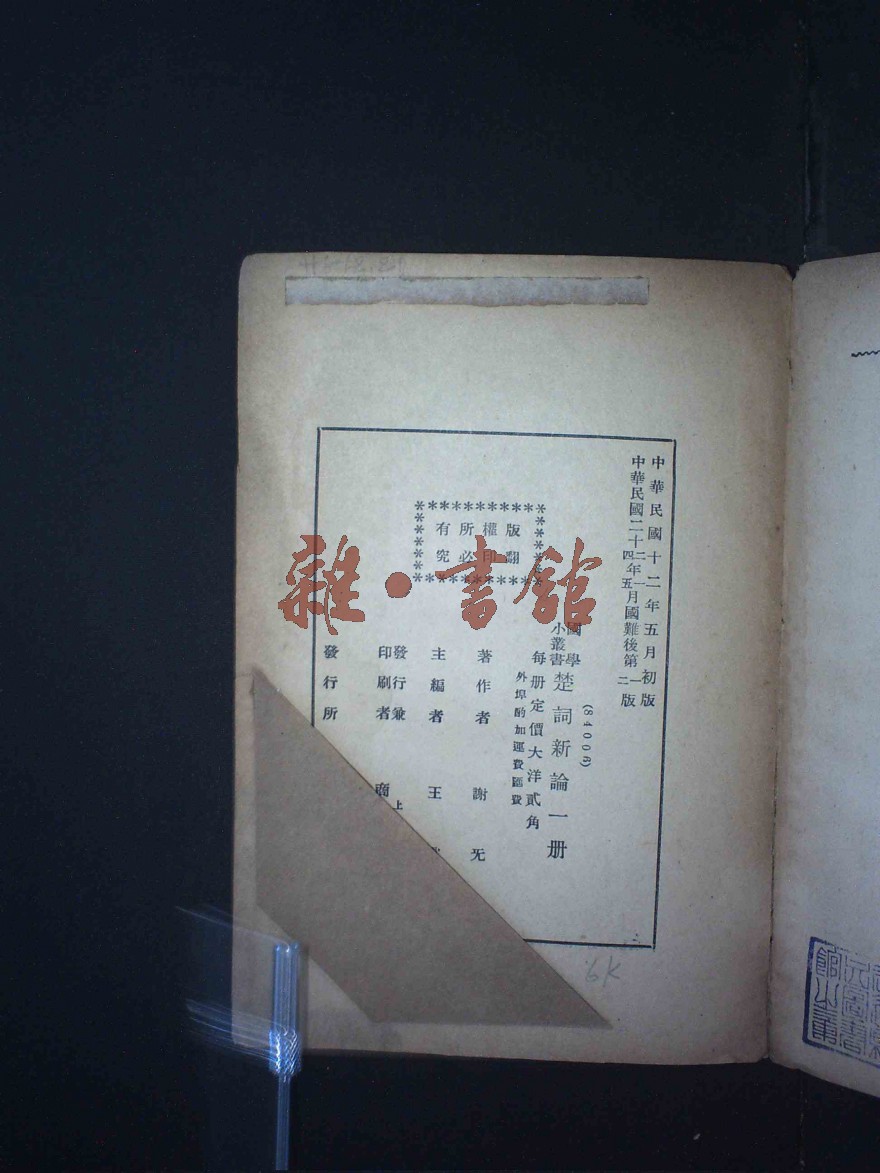 中華民國十二年五月初版
中華民國二十二年一月國難後第一版
中華民國二十四年五月國難後第二版
(84006)
國學小叢書
楚詞新論一册
每册定價大洋貳角
外埠酌加運費匯費
版權所有
翻印必究
著作者 謝无
主編者 王
發行兼印刷者 上 商
發行所
雜·書館
6K